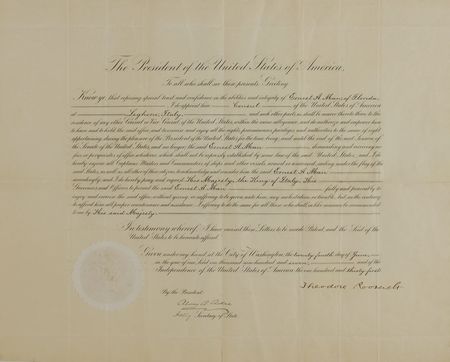 The President of the United States of America,
To all who shall see these presents, Greeting:
Know ye, that reposing special trust and confidence in the abilities and integrity of Ernest A. Man of Florida
I do appoint him Consul of the United States of America
at Leghorn, Italy and such other parts as shall be nearer thereto than to the
residence of any other Consul or Vice Consul of the United States, within the same allegiance, and do authorize and empower him
to have and to hold the said office and to exercise and enjoy all the rights, preeminences, privileges and authorities to the same of right
appertaining, during the pleasure of the President of the United States for the time being, and until the end of the next Session of
the Senate of the United States, and no longer; the said Ernest A. Man demanding and receiving no
fees or perquisites of office whatever, which shall not be expressly established by some law of the said United States; and I do
hereby enjoin all Captains, Masters and Commanders of ships and other vessels, armed or unarmed, sailing under the flag of the
said States, as well as all other of their citizens, to acknowledge and consider him the said Ernest A. Man
accordingly; and I do hereby pray and request His Majesty, the King of Italy, His
Governors and Officers to permit the said Ernest A. Man fully and peaceably to
enjoy and exercise the said office without giving, or suffering to be given unto him, any molestation or trouble, but on the contrary
to afford him all proper countenance and assistance; I offering to do the same for all those who shall in like manner be recommended
to me by His said Majesty.
In testimony whereof, I have caused these Letters to be made Patent, and the Seal of the
United States to be hereunto affixed.
Given under my hand at the City of Washington the twenty fourth day of June
in the year of our Lord one thousand nine hundred and seven and of the
Independence of the United States of America the one hundred and thirty first
Theodore Roosevelt
By the President:
Acting Secretary of State